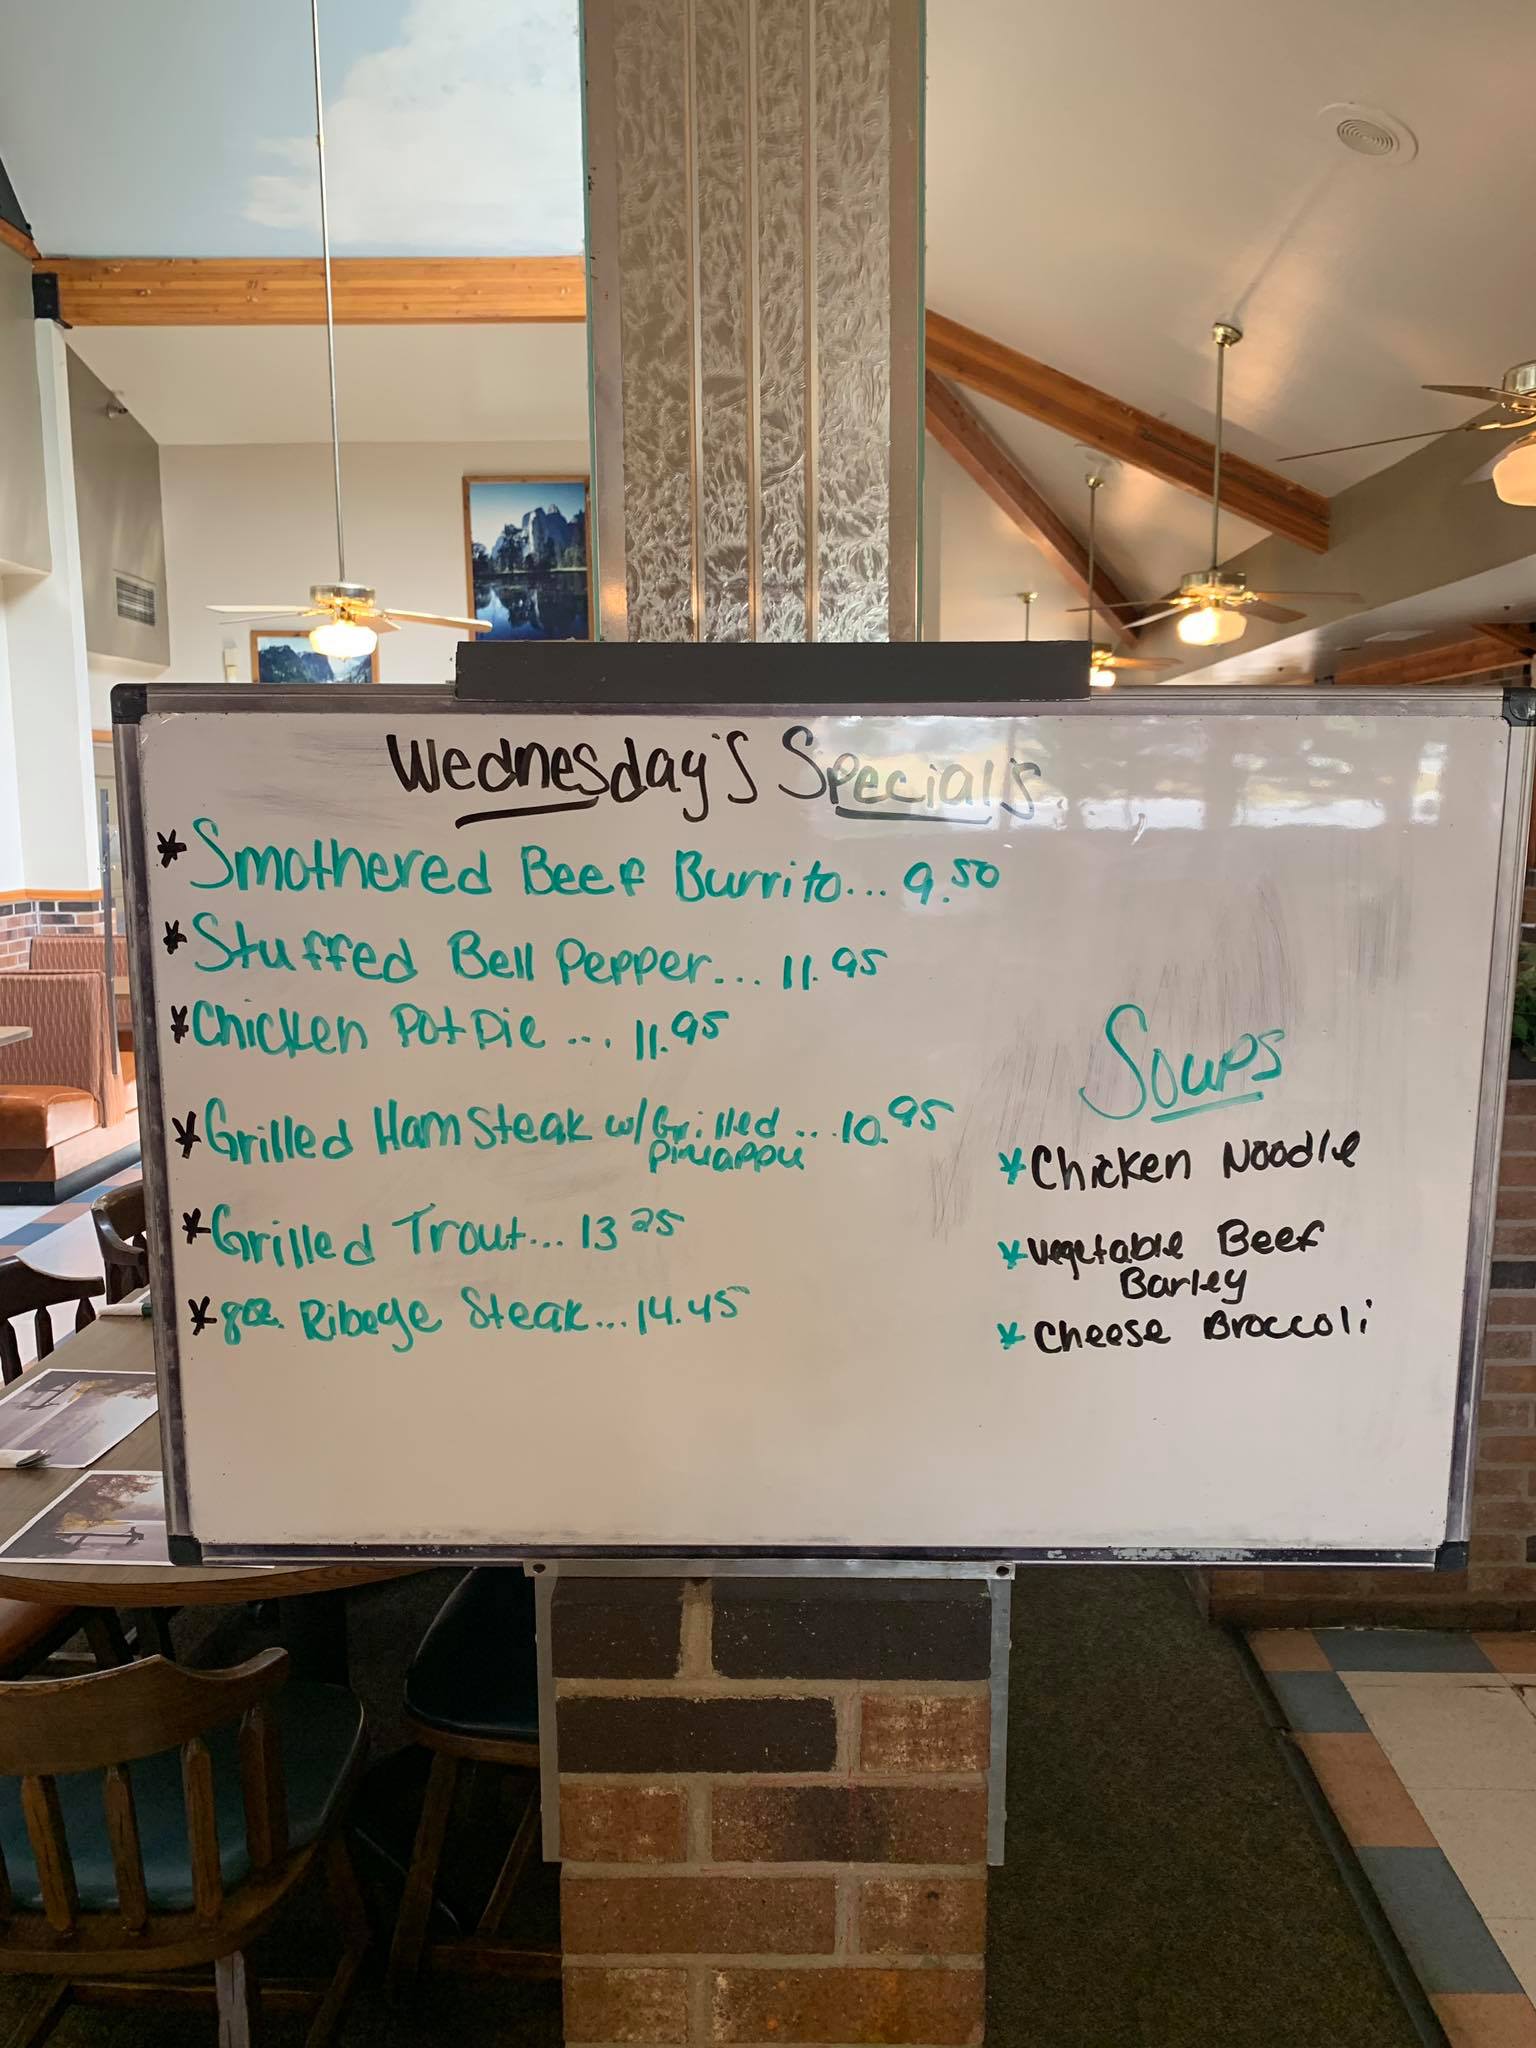 Wednesday's Specials
* Smothered Beef Burrito... 9.50
* Stuffed Bell Pepper... 11.95
* Chicken Pot Pie ... 11.95
* Grilled Ham Steak w/ Grilled ... 10.95
Pineapple
* Grilled Trout... 13 25
* 8oz. Ribeye Steak... 14.45
Soups
* Chicken Noodle
* Vegetable Beef
Barley
* Cheese Broccoli